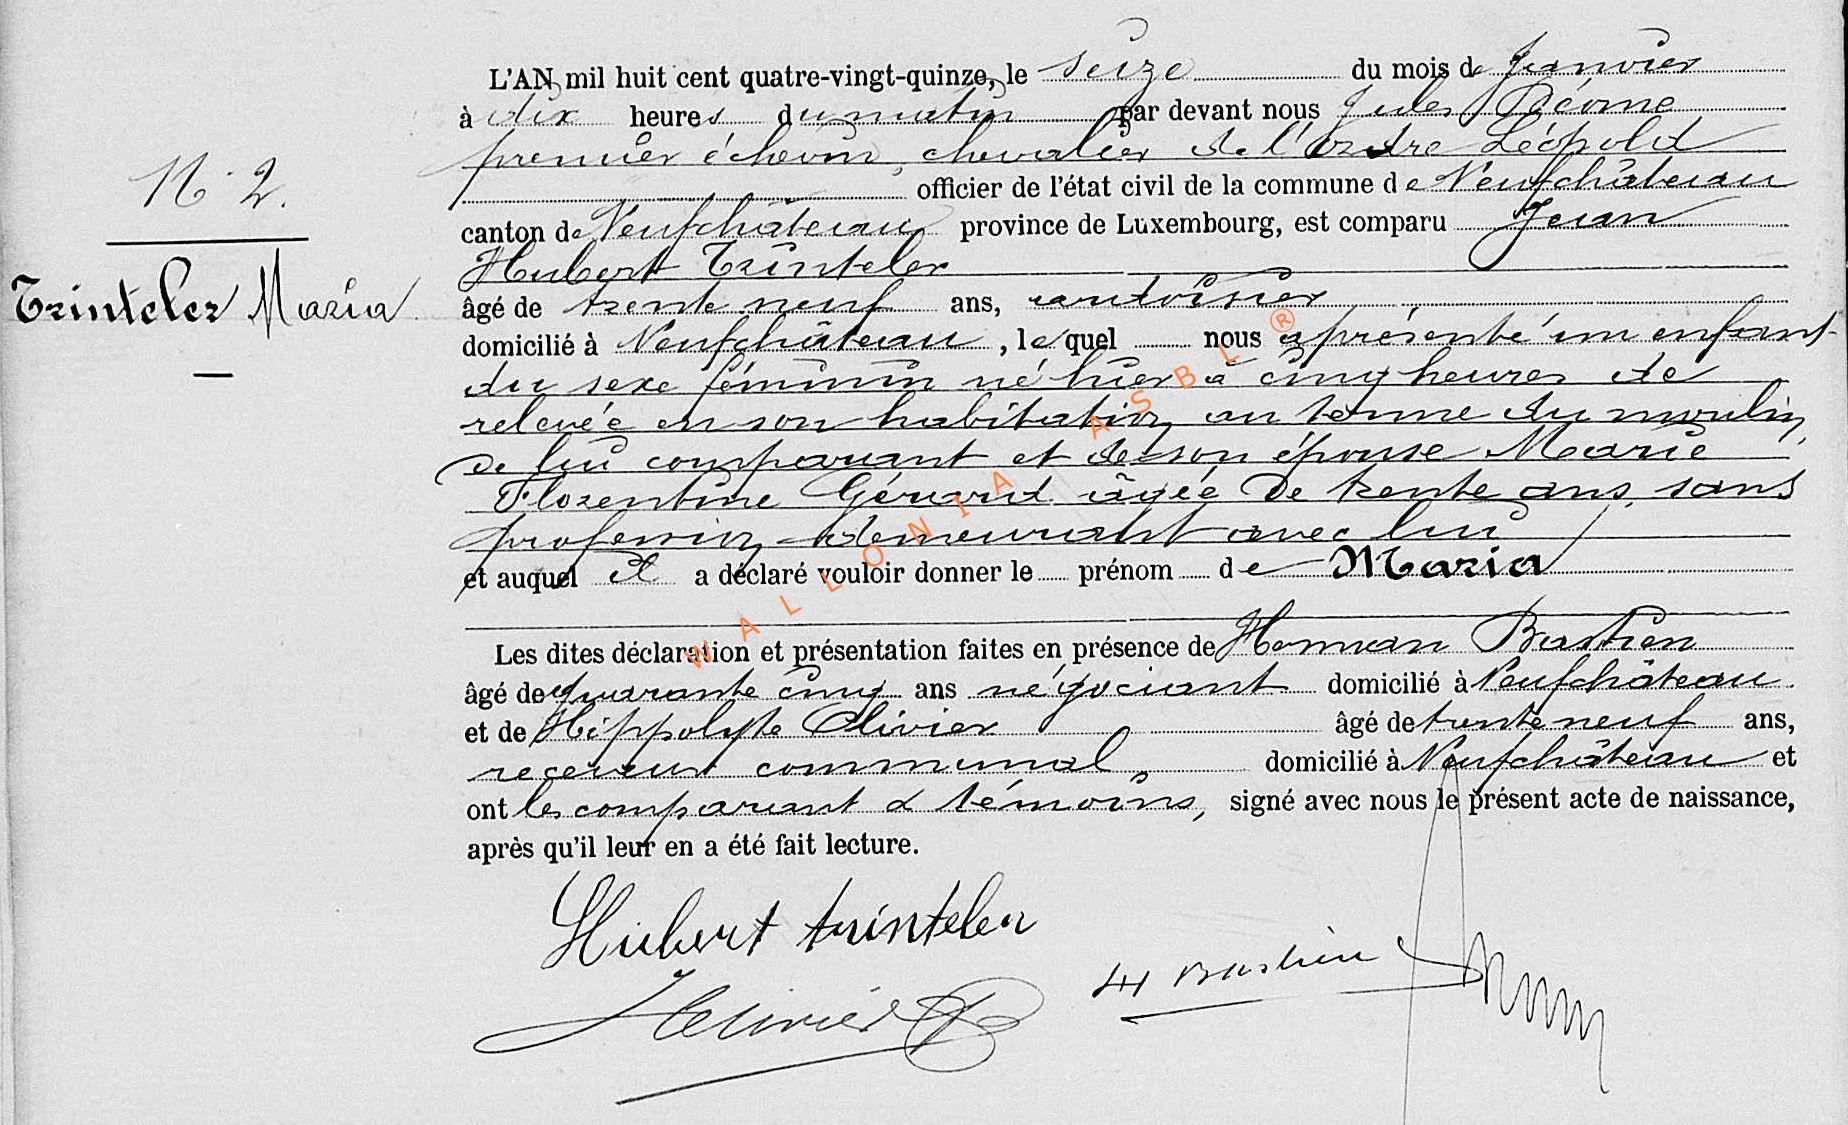 L'AN mil huit cent quatre-vingt-quinze, le seize du mois de Janvier
à dix heures du matin par devant nous Jules
premier échevin, chevalier de l'Ordre Léopold
N° 2.
officier de l'état civil de la commune de Neufchâteau
canton de Neufchâteau province de Luxembourg, est comparu Jean
Hubert Trinteler
Trinteler Maria
âgé de trente neuf ans, ardoisier
domicilié à Neufchâteau, lequel nous a présenté un enfant
du sexe féminin né hier à cinq heures de
relevée en son habitation au terme du moulin,
de lui comparant et de son épouse Marie
Florentine Gérard âgée de trente ans, sans
profession demeurant avec lui
et auquel il a déclaré vouloir donner le prénom de Maria
Les dites déclaration et présentation faites en présence de Herman Bastien
âgé de quarante cinq ans négociant domicilié à Neufchâteau
et de Hippolyte Olivier âgé de trente neuf ans,
receveur communal, domicilié à Neufchâteau et
ont les comparant & témoins, signé avec nous le présent acte de naissance,
après qu'il leur en a été fait lecture.
Hubert trinteler
H Bastien
HOlivier
WALLONIA ASBL ®